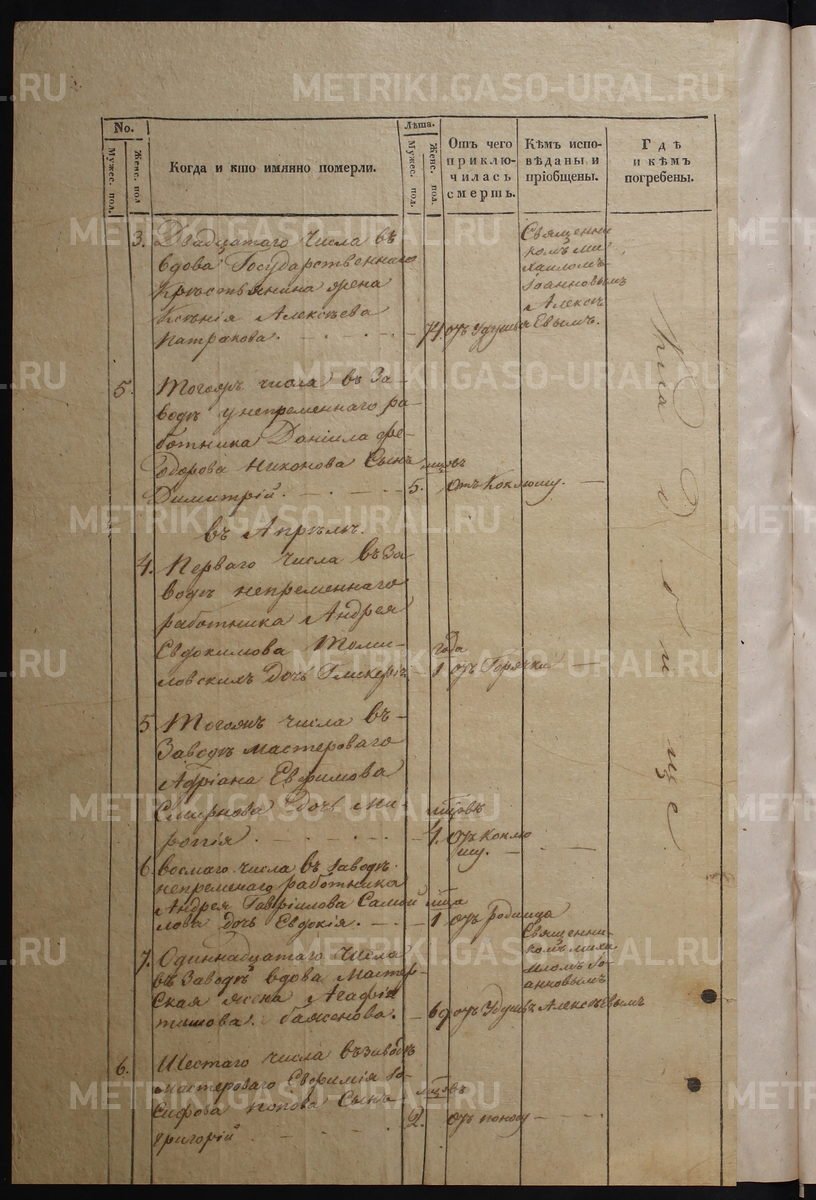 No.
Мужес. пол.
Женс. пол.
Когда и кто имянно померли.
Лѣта.
Мужес. пол.
Женс. пол.
Отъ чего
приклю-
чилась
смерть.
Кѣмъ испо-
вѣданы и
прiобщены.
Гдѣ
и кѣмъ
погребены.
3. Двадцатаго числа въ
вдова Государственнаго
Крестьянина жена
Ксѣнiя Алексѣева
Патракова.
74. отъ удушья
Священни
комъ Ми
хаиломъ
Iоанновымъ
Алексѣ
Евымъ.
5. Тогожъ числа въ За-
водѣ у непременнаго ра-
ботника Данiила Фе-
одорова Никонова Сынъ
Димитрiй.
мцовъ
5. отъ Коклюшу.
въ Апрѣлѣ.
4. Перваго числа въ За-
водѣ непременнаго
работника Андрея
Евдокимова Томи-
ловскихъ дочь Гликерiя
года
1 отъ Горячки
5 Тогожъ числа въ
Заводѣ мастероваго
Адрiана Евфимова
Смирнова дочь Ми-
ропiя.
мцовъ
4. отъ коклю
шу.
6. восмаго числа въ заводѣ
непременнаго работника
Андрея Гаврiилова Самой
лова дочь Евдокiя.
мца
1 отъ родимца
7. Одиннадцатаго числа
въ Заводѣ вдова Мастер-
ская жена Агафiя
Баженова.
69 отъ Удушья
Священни-
комъ Миха
иломъ Iо-
анновымъ
Алексѣевымъ
6. Шестаго числа въ заводѣ
мастероваго Евфимiя Iо-
сифова Попова Сынъ
Григорiй
мцовъ
2. отъ поносу
На Кладбищѣ
METRIKI.GASO-URAL.RU